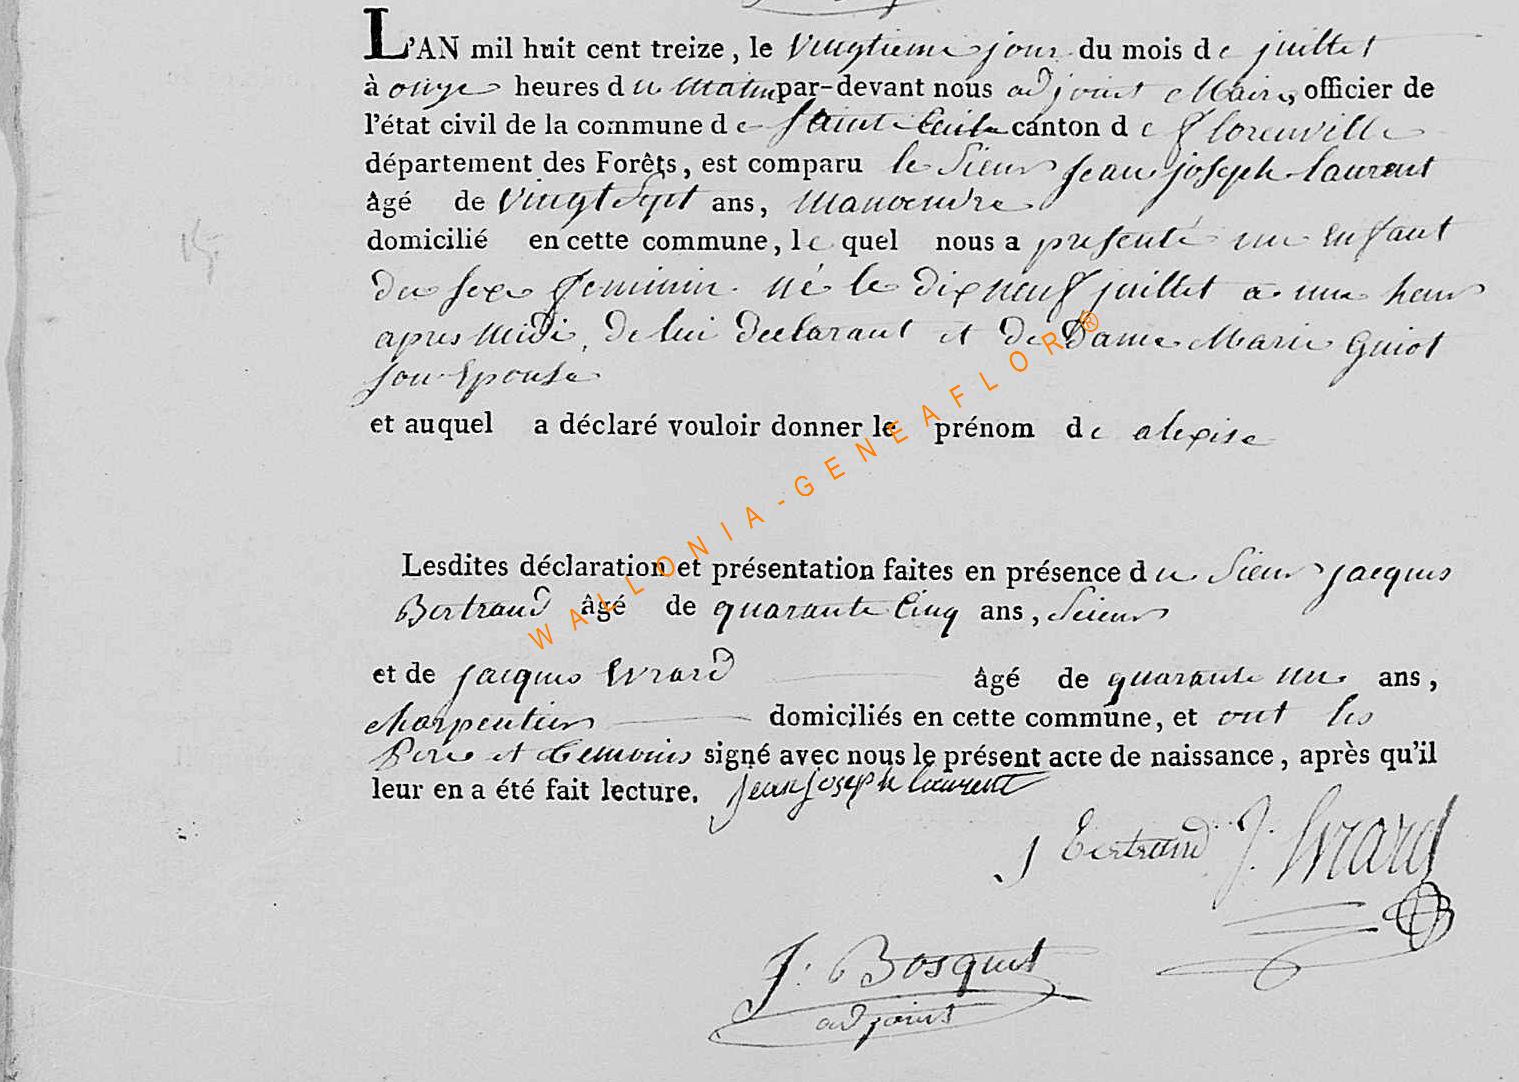 L'AN mil huit cent treize, le vingtieme jour du mois de juillet
à onze heures du matin par-devant nous adjoint Maire, officier de
l'état civil de la commune de Sainte Cecile canton de florenville
département des Forêts, est comparu le Sieur jean joseph laurent
âgé de vingt Sept ans, manoeuvre
domicilié en cette commune, le quel nous a presenté un enfant
du sexe feminin né le dix neuf juillet a une heur
apres midi, de lui declarant et de Dame Marie Guiot
son Epouse
et auquel a déclaré vouloir donner le prénom de alexise
WALLONIA-GENEAFLOR®
Lesdites déclaration et présentation faites en présence du Sieur jacques
Bertrand âgé de quarante Cinq ans, Scieur
et de jacques Evrard âgé de quarante un ans,
charpentier domiciliés en cette commune, et ont les
Pere et temoins signé avec nous le présent acte de naissance, après qu'il
leur en a été fait lecture. jean joseph laurent
J Bertrand J. Evrard
J. Bosquet
adjoint